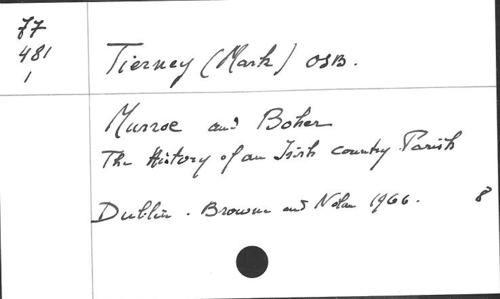 77
481
1
Tierney (Mark) OSB.
Murroe and Boher
The History of an Irish country Parish
Dublin. Browne and Nolan 1966. 8